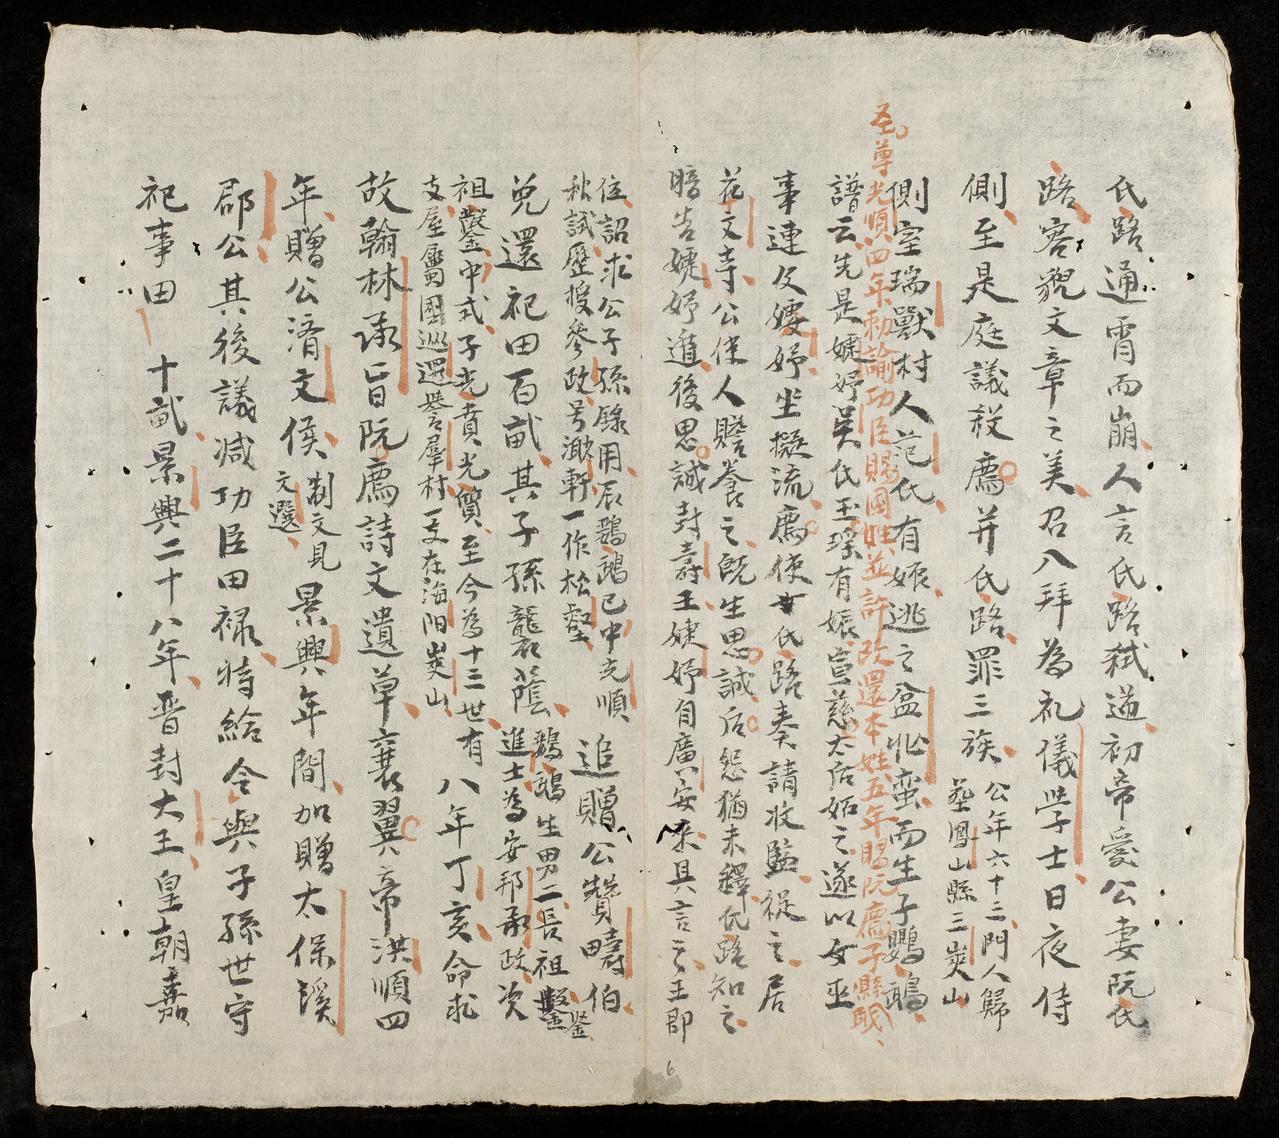 氏路通宵而崩人言氏路弒逆初帝愛公妻阮氏
路容貌文章之美召入拜為礼儀学士日夜侍
側至是庭議殺廌并氏路罪三族
公年六十三門人歸
葬鳳山縣三爽山
側室瑞獸村人范氏有娠逃之盆忙蛮而生子鸚鵡
至尊光順四年勅諭功臣賜國姓並許改還本姓五年賜阮廌子縣職
譜云先是婕妤吳氏玉瑤有娠宣慈太后妬之遂以女巫
事連及婕妤坐擬流廌使女氏路奏請收監從之居
花文寺公使人贍養之既生思誠后怨猶未釋氏路知之
暗告婕妤遁後思誠封壽王婕妤自廣安來具言之王即
位詔求公子孫錄用辰鸚鵡已中光順
秋試歷授參政号漱軒一作松壑
追贈公贊疇伯
兌還祀田百畝其子孫襲蔭
鸚鵡生男二長祖鑿
鑒
進士為安邦承政次
祖鑿中式子光賁光質至今為十三世有
支屋屬國巡還譽群村一支在海阳爽山
八年丁亥命求
故翰林承旨阮廌詩文遺草襄翼帝洪順四
年贈公濟文侯
制文見
文選
景興年間加贈太保溪
郡公其後議減功臣田禄特給令與子孫世守
祀事田
十畝景興二十八年晋封大王皇朝嘉
6